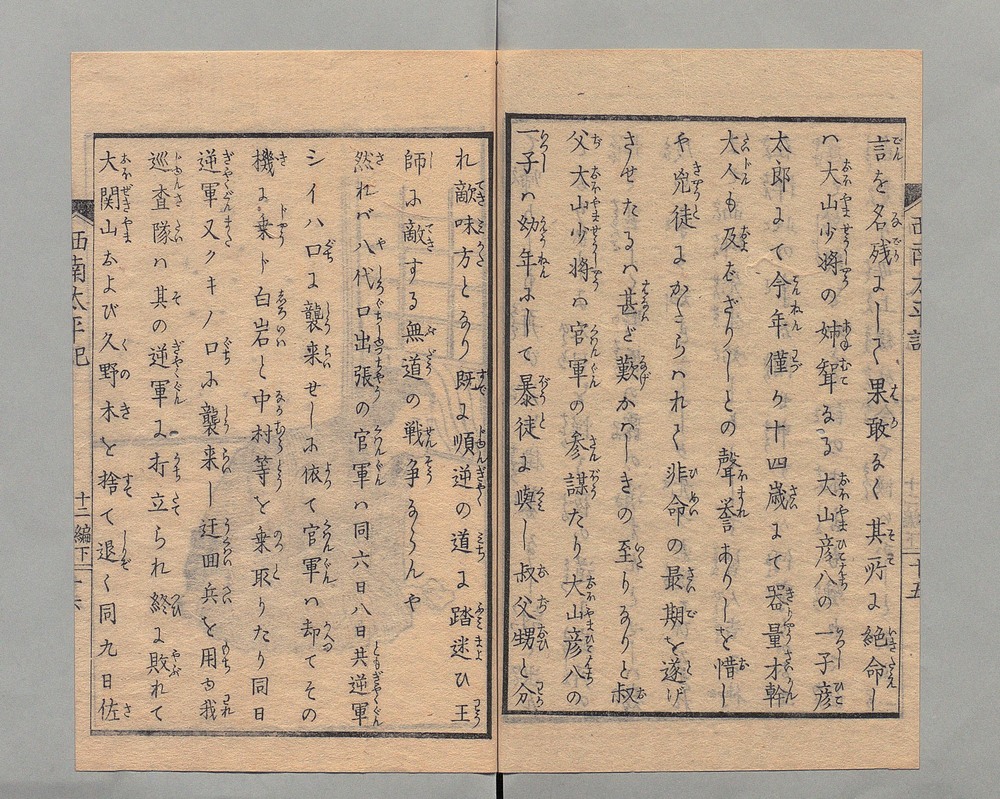 言を名残にして果敢なく其所に絶命し
ハ大山少将の姉聟なる大山彦八の一子彦
太郎にて今年僅か十四歳にて器量才幹
大人も及ばざりしとの聲誉ありしを惜し
や兇徒にかたらハれて非命の最期を遂げ
させたるハ甚ど歎かハしきの至りなりと叔
父大山少将ハ官軍の参謀たり大山彦八の
一子ハ幼年にして暴徒に與し叔父甥と分
れ敵味方となり既に順逆の道に踏迷ひ王
師に敵する無道の戦争ならんや
然れバ八代口出張の官軍ハ同六日八日共逆軍
シイハ口に襲来せしに依て官軍ハ却てその
機に乗ド白岩と中村等を乗取りたり同日
逆軍又クキノ口に襲来し迂回兵を用ゐ我
巡査隊ハ其の逆軍に打立られ終に敗れて
大関山および久野木を捨て退く同九日佐
西南太平記
十二編下
西南太平記
十五